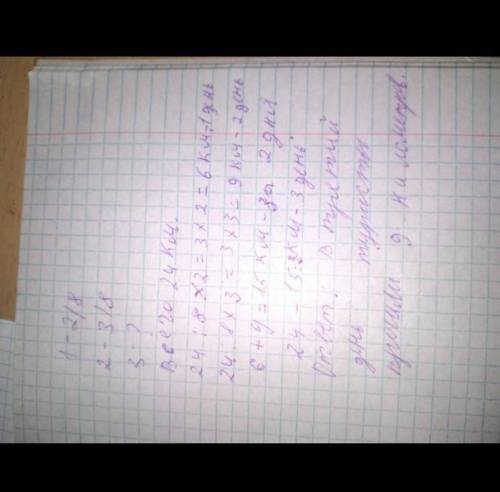 1 - 2/8
2 - 3/8
3 - ?
Всего 24 км.
24 : 8 × 2 = 3 × 2 = 6 км - 1 день
24 : 8 × 3 = 3 × 3 = 9 км - 2 день
6 + 9 = 15 км - за 2 дня
24 - 15 = 9 км - 3 день
Ответ: в третий
день туристы
прошли 9 километров.